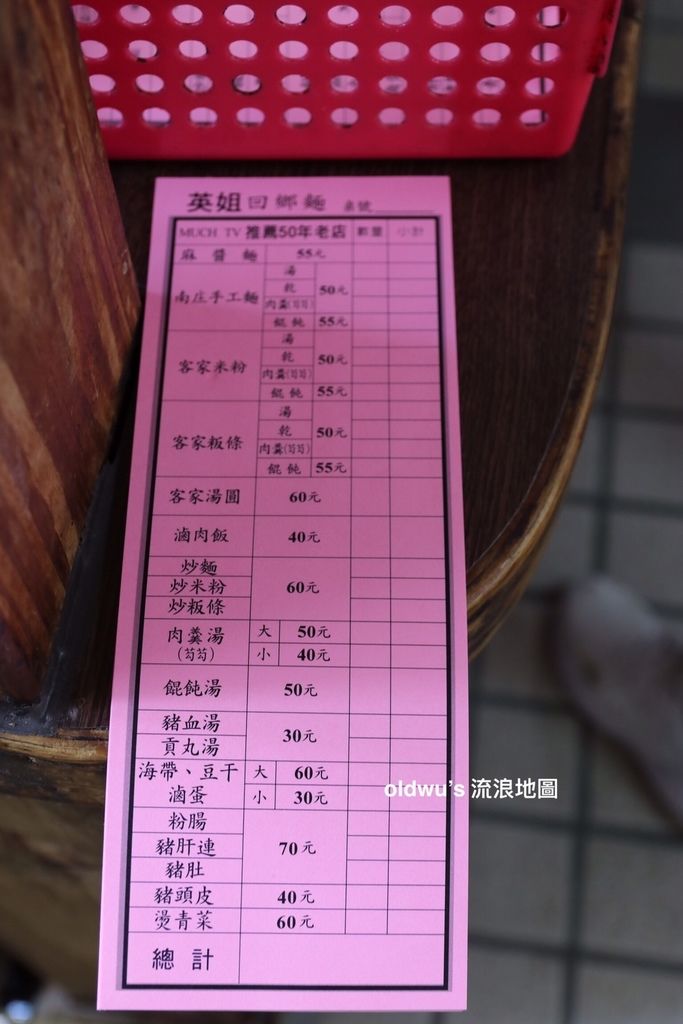 英姐回鄉麵 桌號
MUCH TV 推薦50年老店 數量 小計
麻醬麵 55元
南庄手工麵 湯 乾 肉羹(芶芶) 50元
餛飩 55元
客家米粉 湯 乾 肉羹(芶芶) 50元
餛飩 55元
客家粄條 湯 乾 肉羹(芶芶) 50元
餛飩 55元
客家湯圓 60元
滷肉飯 40元
炒麵
炒米粉 60元
炒粄條
肉羹湯 大 50元
(芶芶) 小 40元
餛飩湯 50元
豬血湯 30元
貢丸湯
海帶、豆干 大 60元
滷蛋 小 30元
粉腸
豬肝連 70元
豬肚
豬頭皮 40元
燙青菜 60元
總計
oldwu's 流浪地圖